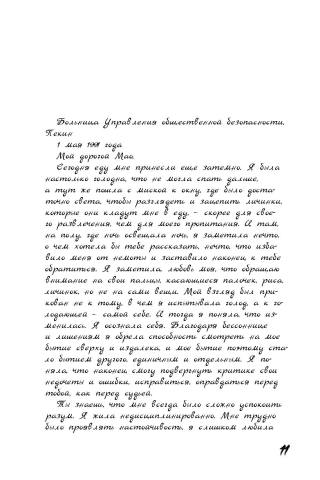 Больница Управления общественной безопасности.
Пекин
1 мая 1991 года
Мой дорогой Мао,
Сегодня еду мне принесли еще затемно. Я была
настолько голодна, что не могла спать дальше,
а тут же пошла с миской к окну, где было доста-
точно света, чтобы разглядеть и зацепить личинки,
которые они кладут мне в еду, – скорее для свое-
го развлечения, чем для моего пропитания. А там,
на полу, где ночь освещала ночь, я заметила нечто,
о чем хотела бы тебе рассказать, нечто, что изба-
вило меня от немоты и заставило наконец к тебе
обратиться. Я заметила, любовь моя, что обращаю
внимание на свои пальцы, касающиеся палочек, риса,
личинок, но не на сами вещи. Мой взгляд был при-
кован не к тому, в чем я испытывала голод, а к го-
лодающей – самой себе. А тогда я поняла, что из-
менилась. Я осознала себя. Благодаря бессоннице
и лишениям я обрела способность смотреть на мое
бытие сверху и издалека, и мое бытие поэтому ста-
ло бытием другого, единичным и отдельным. Я по-
няла, что наконец смогу подвергнуть критике свои
недочеты и ошибки, исправиться, оправдаться перед
тобой, как перед судьей.
Ты знаешь, что мне всегда было сложно успокоить
разум. Я жила недисциплинированно. Мне трудно
было проявлять настойчивость, я слишком любила
11